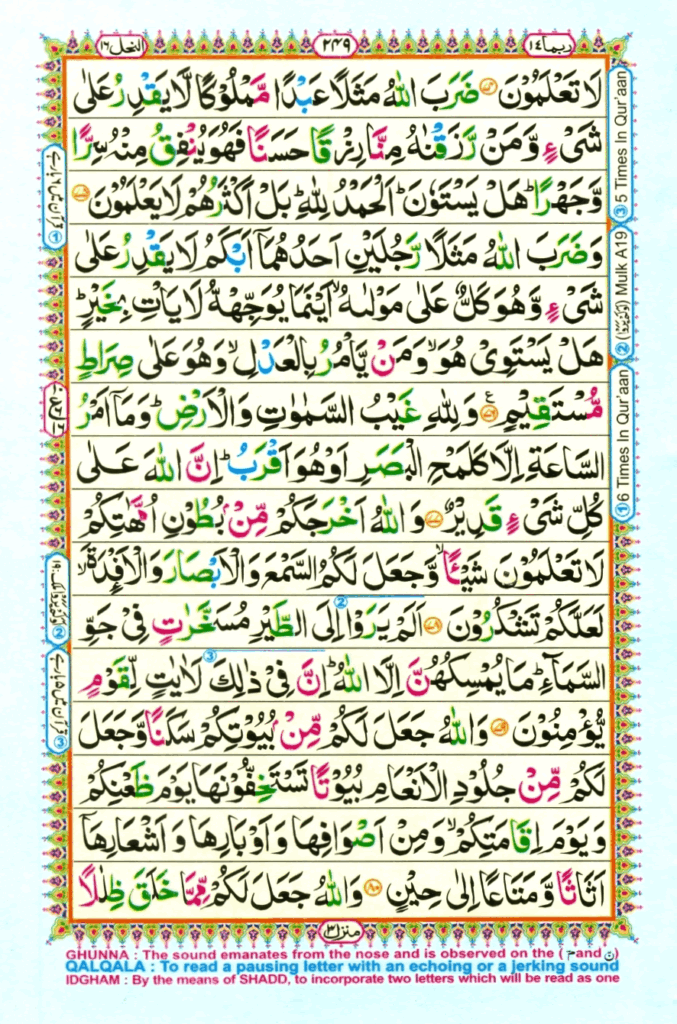 ربما ١٤
٢٤٩
النحل ١٦
لَا تَعْلَمُوْنَ ۝ ضَرَبَ اللّٰهُ مَثَلًا عَبْدًا مَّمْلُوْكًا لَّا يَقْدِرُ عَلٰى
شَىْءٍ وَّمَنْ رَّزَقْنٰهُ مِنَّا رِزْقًا حَسَنًا فَهُوَ يُنْفِقُ مِنْهُ سِرًّا
وَّجَهْرًا ؕ هَلْ يَسْتَوٗنَ ؕ اَلْحَمْدُ لِلّٰهِ ؕ بَلْ اَكْثَرُهُمْ لَا يَعْلَمُوْنَ ۝
وَضَرَبَ اللّٰهُ مَثَلًا رَّجُلَيْنِ اَحَدُهُمَاۤ اَبْكَمُ لَا يَقْدِرُ عَلٰى
شَىْءٍ وَّهُوَ كَلٌّ عَلٰى مَوْلٰىهُ ۙ اَيْنَمَا يُوَجِّهْهُّ لَا يَاْتِ بِخَيْرٍ ؕ
هَلْ يَسْتَوِىْ هُوَ ۙ وَمَنْ يَّاْمُرُ بِالْعَدْلِ ۙ وَهُوَ عَلٰى صِرَاطٍ
مُّسْتَقِيْمٍ ۝ وَلِلّٰهِ غَيْبُ السَّمٰوٰتِ وَالْاَرْضِ ؕ وَمَاۤ اَمْرُ
السَّاعَةِ اِلَّا كَلَمْحِ الْبَصَرِ اَوْ هُوَ اَقْرَبُ ؕ اِنَّ اللّٰهَ عَلٰى
كُلِّ شَىْءٍ قَدِيْرٌ ۝ وَاللّٰهُ اَخْرَجَكُمْ مِّنْۢ بُطُوْنِ اُمَّهٰتِكُمْ
لَا تَعْلَمُوْنَ شَيْـًٔا ۙ وَّجَعَلَ لَكُمُ السَّمْعَ وَالْاَبْصَارَ وَالْاَفْـِٕدَةَ ۙ
لَعَلَّكُمْ تَشْكُرُوْنَ ۝ اَلَمْ يَرَوْا اِلَى الطَّيْرِ مُسَخَّرٰتٍ فِىْ جَوِّ
السَّمَآءِ ؕ مَا يُمْسِكُهُنَّ اِلَّا اللّٰهُ ؕ اِنَّ فِىْ ذٰلِكَ لَاٰيٰتٍ لِّقَوْمٍ
يُّؤْمِنُوْنَ ۝ وَاللّٰهُ جَعَلَ لَكُمْ مِّنْۢ بُيُوْتِكُمْ سَكَنًا وَّجَعَلَ
لَكُمْ مِّنْ جُلُوْدِ الْاَنْعَامِ بُيُوْتًا تَسْتَخِفُّوْنَهَا يَوْمَ ظَعْنِكُمْ
وَيَوْمَ اِقَامَتِكُمْ ۙ وَمِنْ اَصْوَافِهَا وَاَوْبَارِهَا وَاَشْعَارِهَاۤ
اَثَاثًا وَّمَتَاعًا اِلٰى حِيْنٍ ۝ وَاللّٰهُ جَعَلَ لَكُمْ مِّمَّا خَلَقَ ظِلٰلًا
منزل ٣
③ 5 Times In Qur'aan
② Mulk A19
① 6 Times In Qur'aan
GHUNNA : The sound emanates from the nose and is observed on the ( م and ن )
QALQALA : To read a pausing letter with an echoing or a jerking sound
IDGHAM : By the means of SHADD, to incorporate two letters which will be read as one